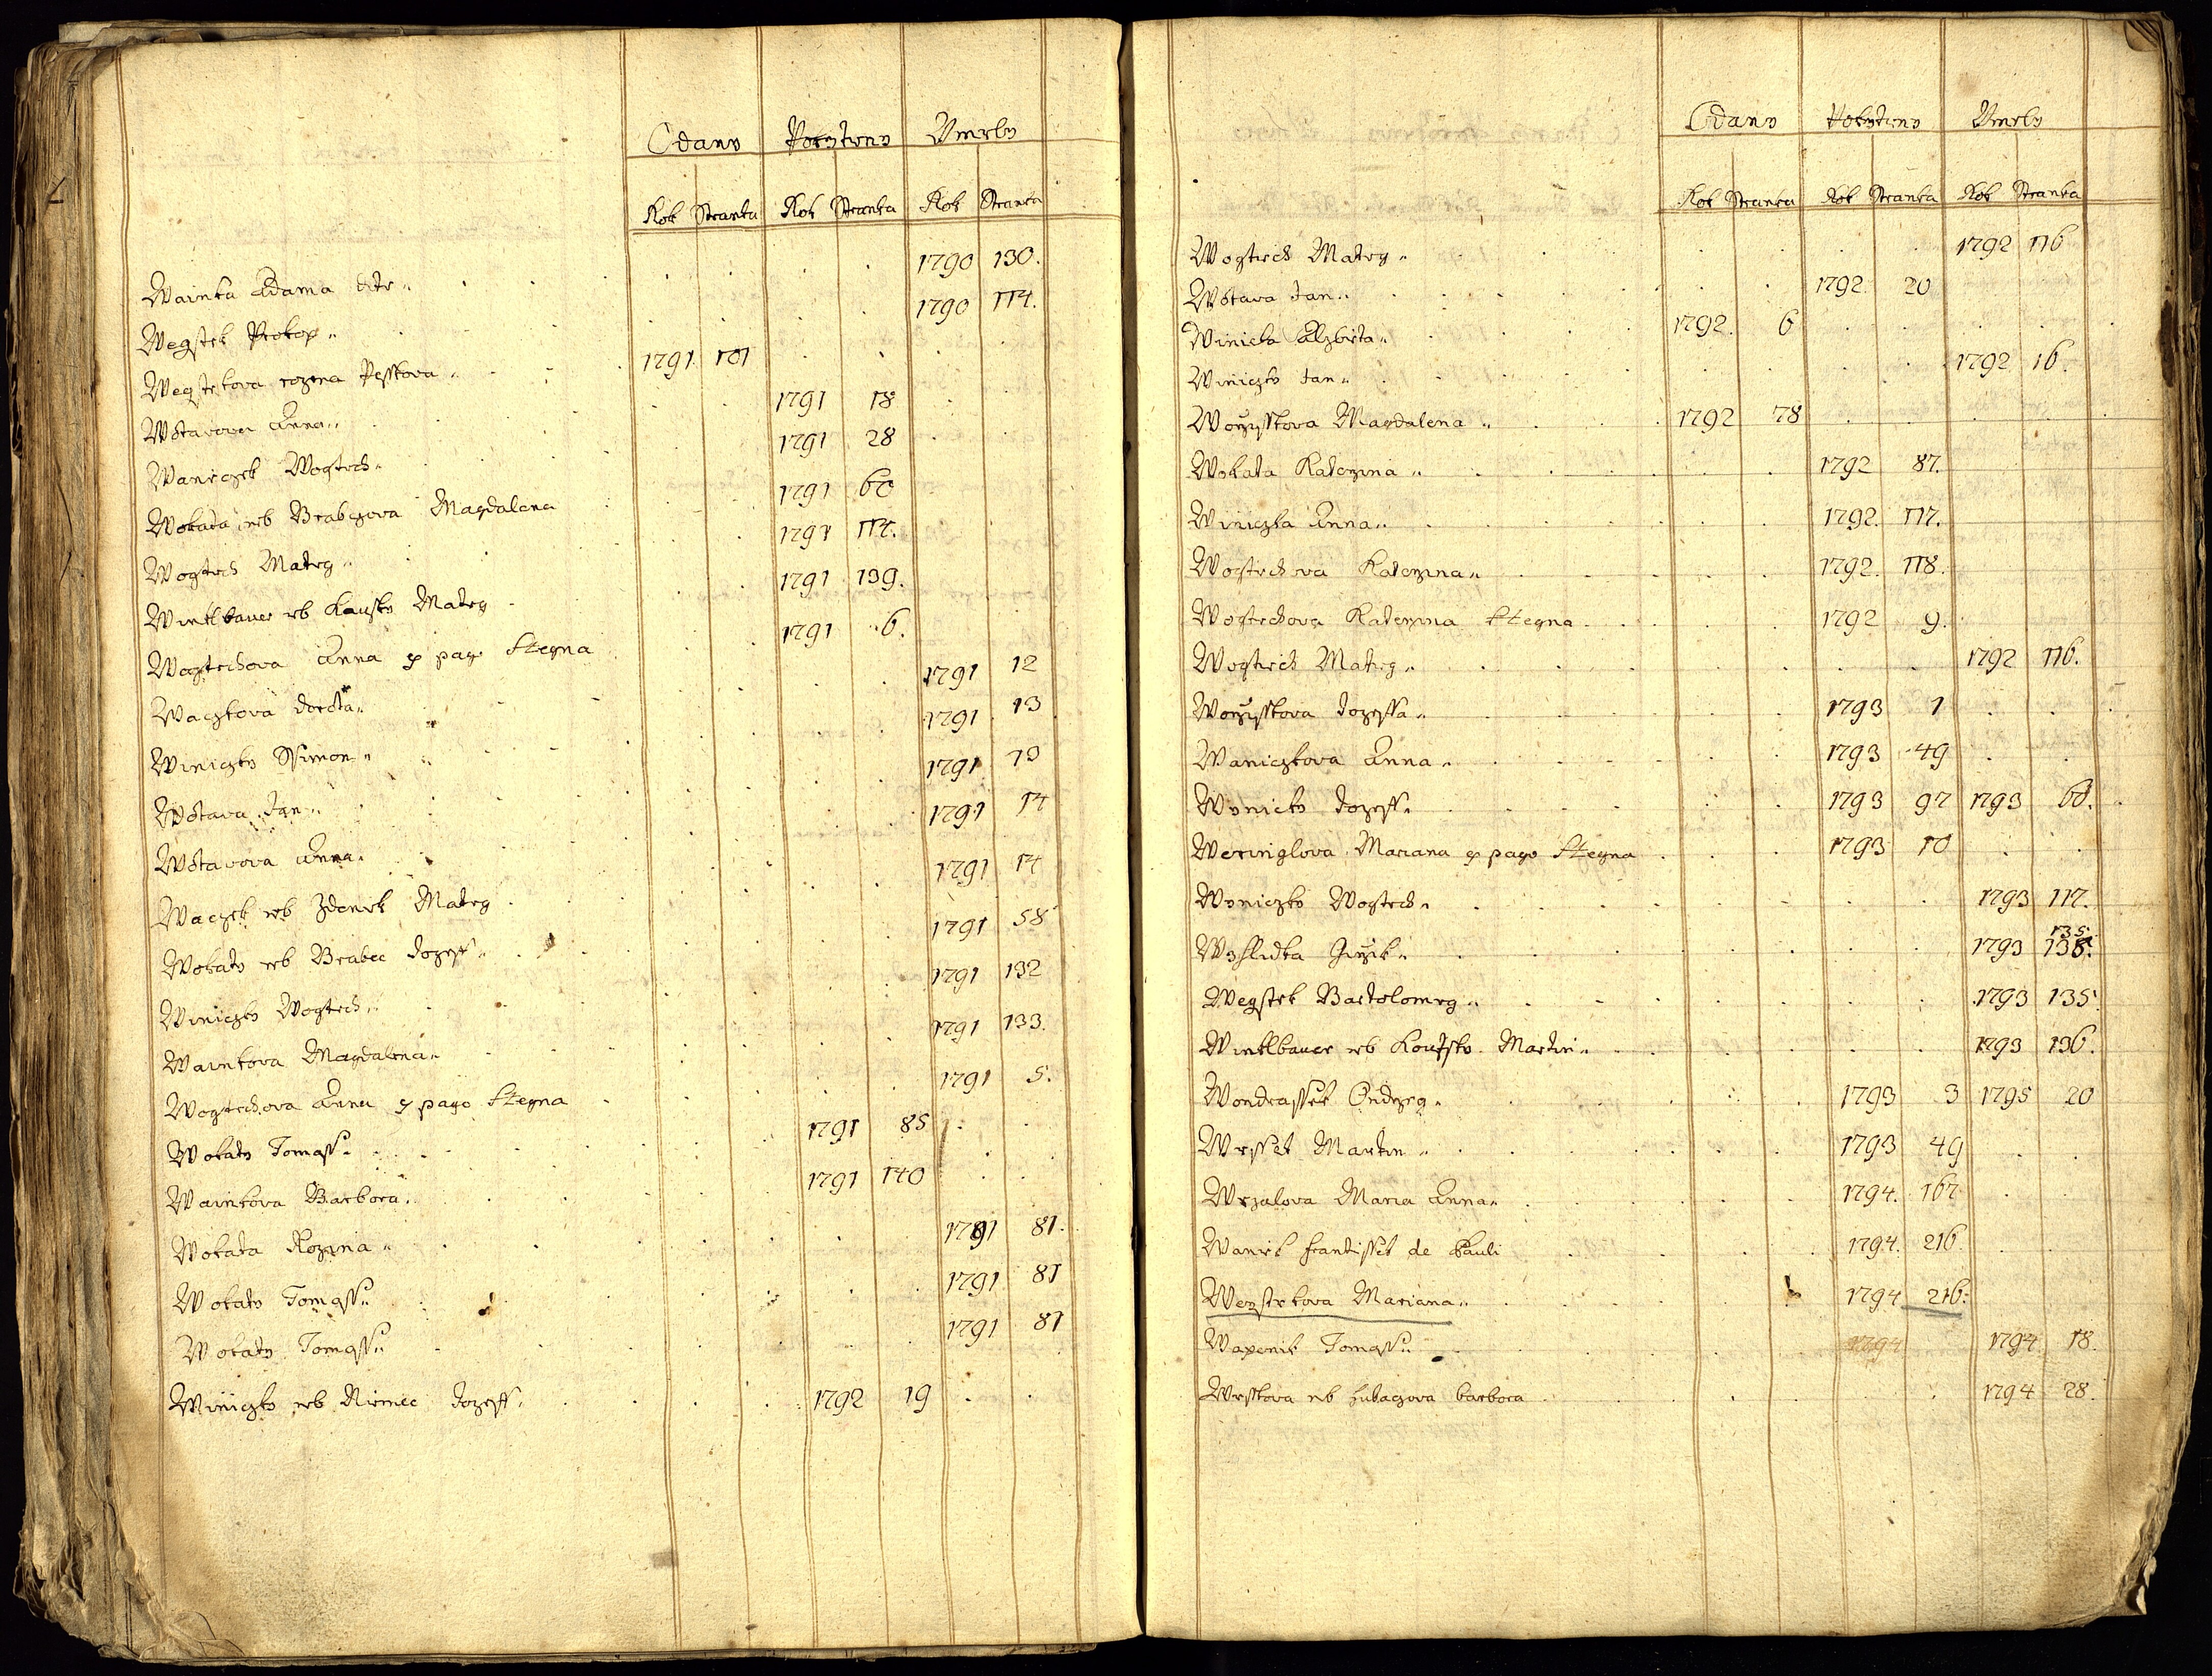 Odany Pokrztieny Vmrely
Rok Stranka Rok Stranka Rok Stranka
Wainka Adama dite 1790 130.
Wegstek Prokop 1790 114.
Wegstrkova rozena Pesskova 1791 101
Wotavova Anna 1791 18
Waniczek Wogtech 1791 28
Wokata neb Brabczova Magdalena 1791 60
Wogtech Mateg 1791 114.
Wintlbauer neb Kausky Mateg 1791 139.
Wogtechova Anna ex pago Stegna 1791 6.
Waczkova dorota 1791 12
Winiczky Ssimon 1791 13
Wotava Jan 1791 13
Wotavova Anna 1791 14
Waczek neb Zdenek Mateg 1791 14
Wokaty neb Brabec Jozeff 1791 58
Winiczky Wogtech 1791 132
Wainkova Magdalena 1791 133.
Wogtechova Anna ex pago Stegna 1791 5.
Wokaty Tomass 1791 85
Wainkova Barbora 1791 140
Wokata Rozyna 1791 81.
Wokaty Tomass 1791 81
Wokaty Tomass 1791 81
Winiczky neb Niemec Jozeff 1792 19
Odany Pokrztieny Vmrely
Rok Stranka Rok Stranka Rok Stranka
Wogtech Mateg 1792 116
Wotava Jan 1792 20
Winicka Alzbieta 1792. 6
Winiczky Jan 1792 16.
Worzysskova Magdalena 1792 78
Wokata Katerzina 1792 87.
Winiczka Anna 1792. 117.
Wogtechova Katerzina 1792. 118.
Wogtechova Katerzina Stegna 1792 9.
Wogtech Mateg 1792 116.
Worzysskova Jozeffa 1793 1
Waniczkova Anna 1793 49
Wynicky Jozeff 1793 97 1793 60.
Weringlova Mariana ex pago Stegna 1793 10
Wyniczky Wogtech 1793 117.
Wyhlidka Girzik 1793 135. 135.
Wegstek Bartolomeg 1793 135
Wintlbauer neb Koutsky Martin 1793 136.
Wondrassek Ondrzeg 1793 3 1795 20
Wrssek Martin 1793 49
Wrzalova Maria Anna 1794. 167
Waniek frantissek de Pauli 1794. 216.
Wegstrkova Mariana 1794 216.
Wapenik Tomass 1794 1794 18.
Wrskova neb hubaczova barbora 1794 28.